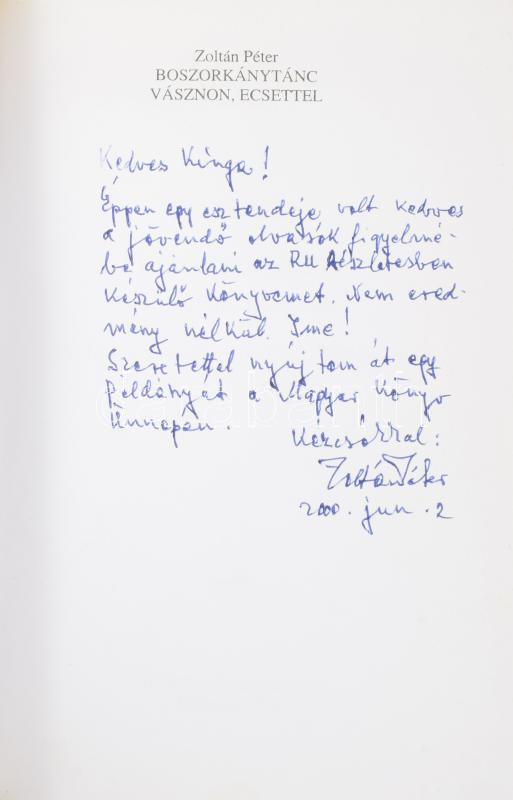 Zoltán Péter
BOSZORKÁNYTÁNC
VÁSZNON, ECSETTEL
Kedves Kinga!
Éppen egy esztendeje volt kedves
a jövendő olvasók figyelmé-
be ajánlani az
készülő könyvemet. Nem ered-
mény nélkül. Ime!
Szeretettel nyújtom át egy
példányát a Magyar Könyv
Ünnepén.
Kézcsókkal:
Zoltán Péter
2000. jun. 2